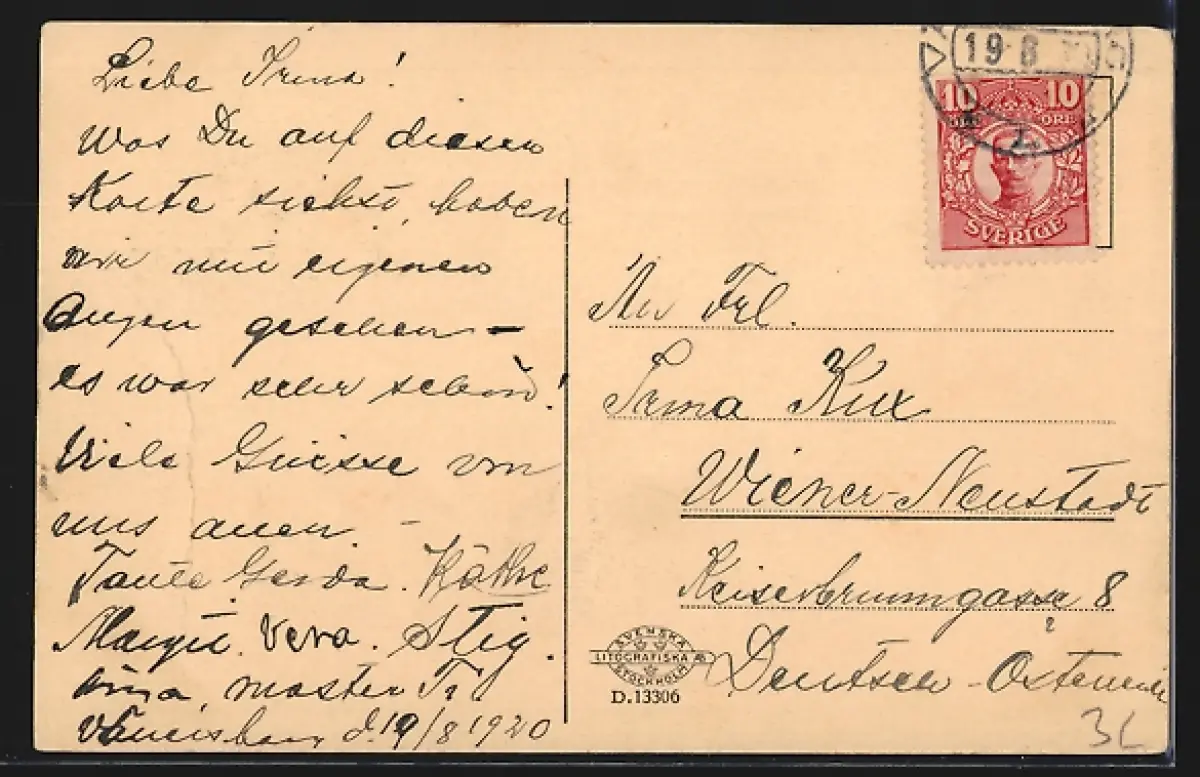 Liebe Irma!
Was Du auf diesen
Karte siehst, haben
wir mit eigenen
Augen gesehen –
es war sehr schön!
Viele Grüsse von
uns allen. –
Tante Gerda. Käthe
Margit. Vera. Stig.
moster
d. 19/8 1920
19 8
10 10
ÖRE
SVERIGE
An Frl.
Irma Kux
Wiener-Neustadt
Kaiserbrunngasse 8
Deutsch-Österreich
SVENSKA
LITOGRAFISKA AB
STOCKHOLM
D.13306
3L